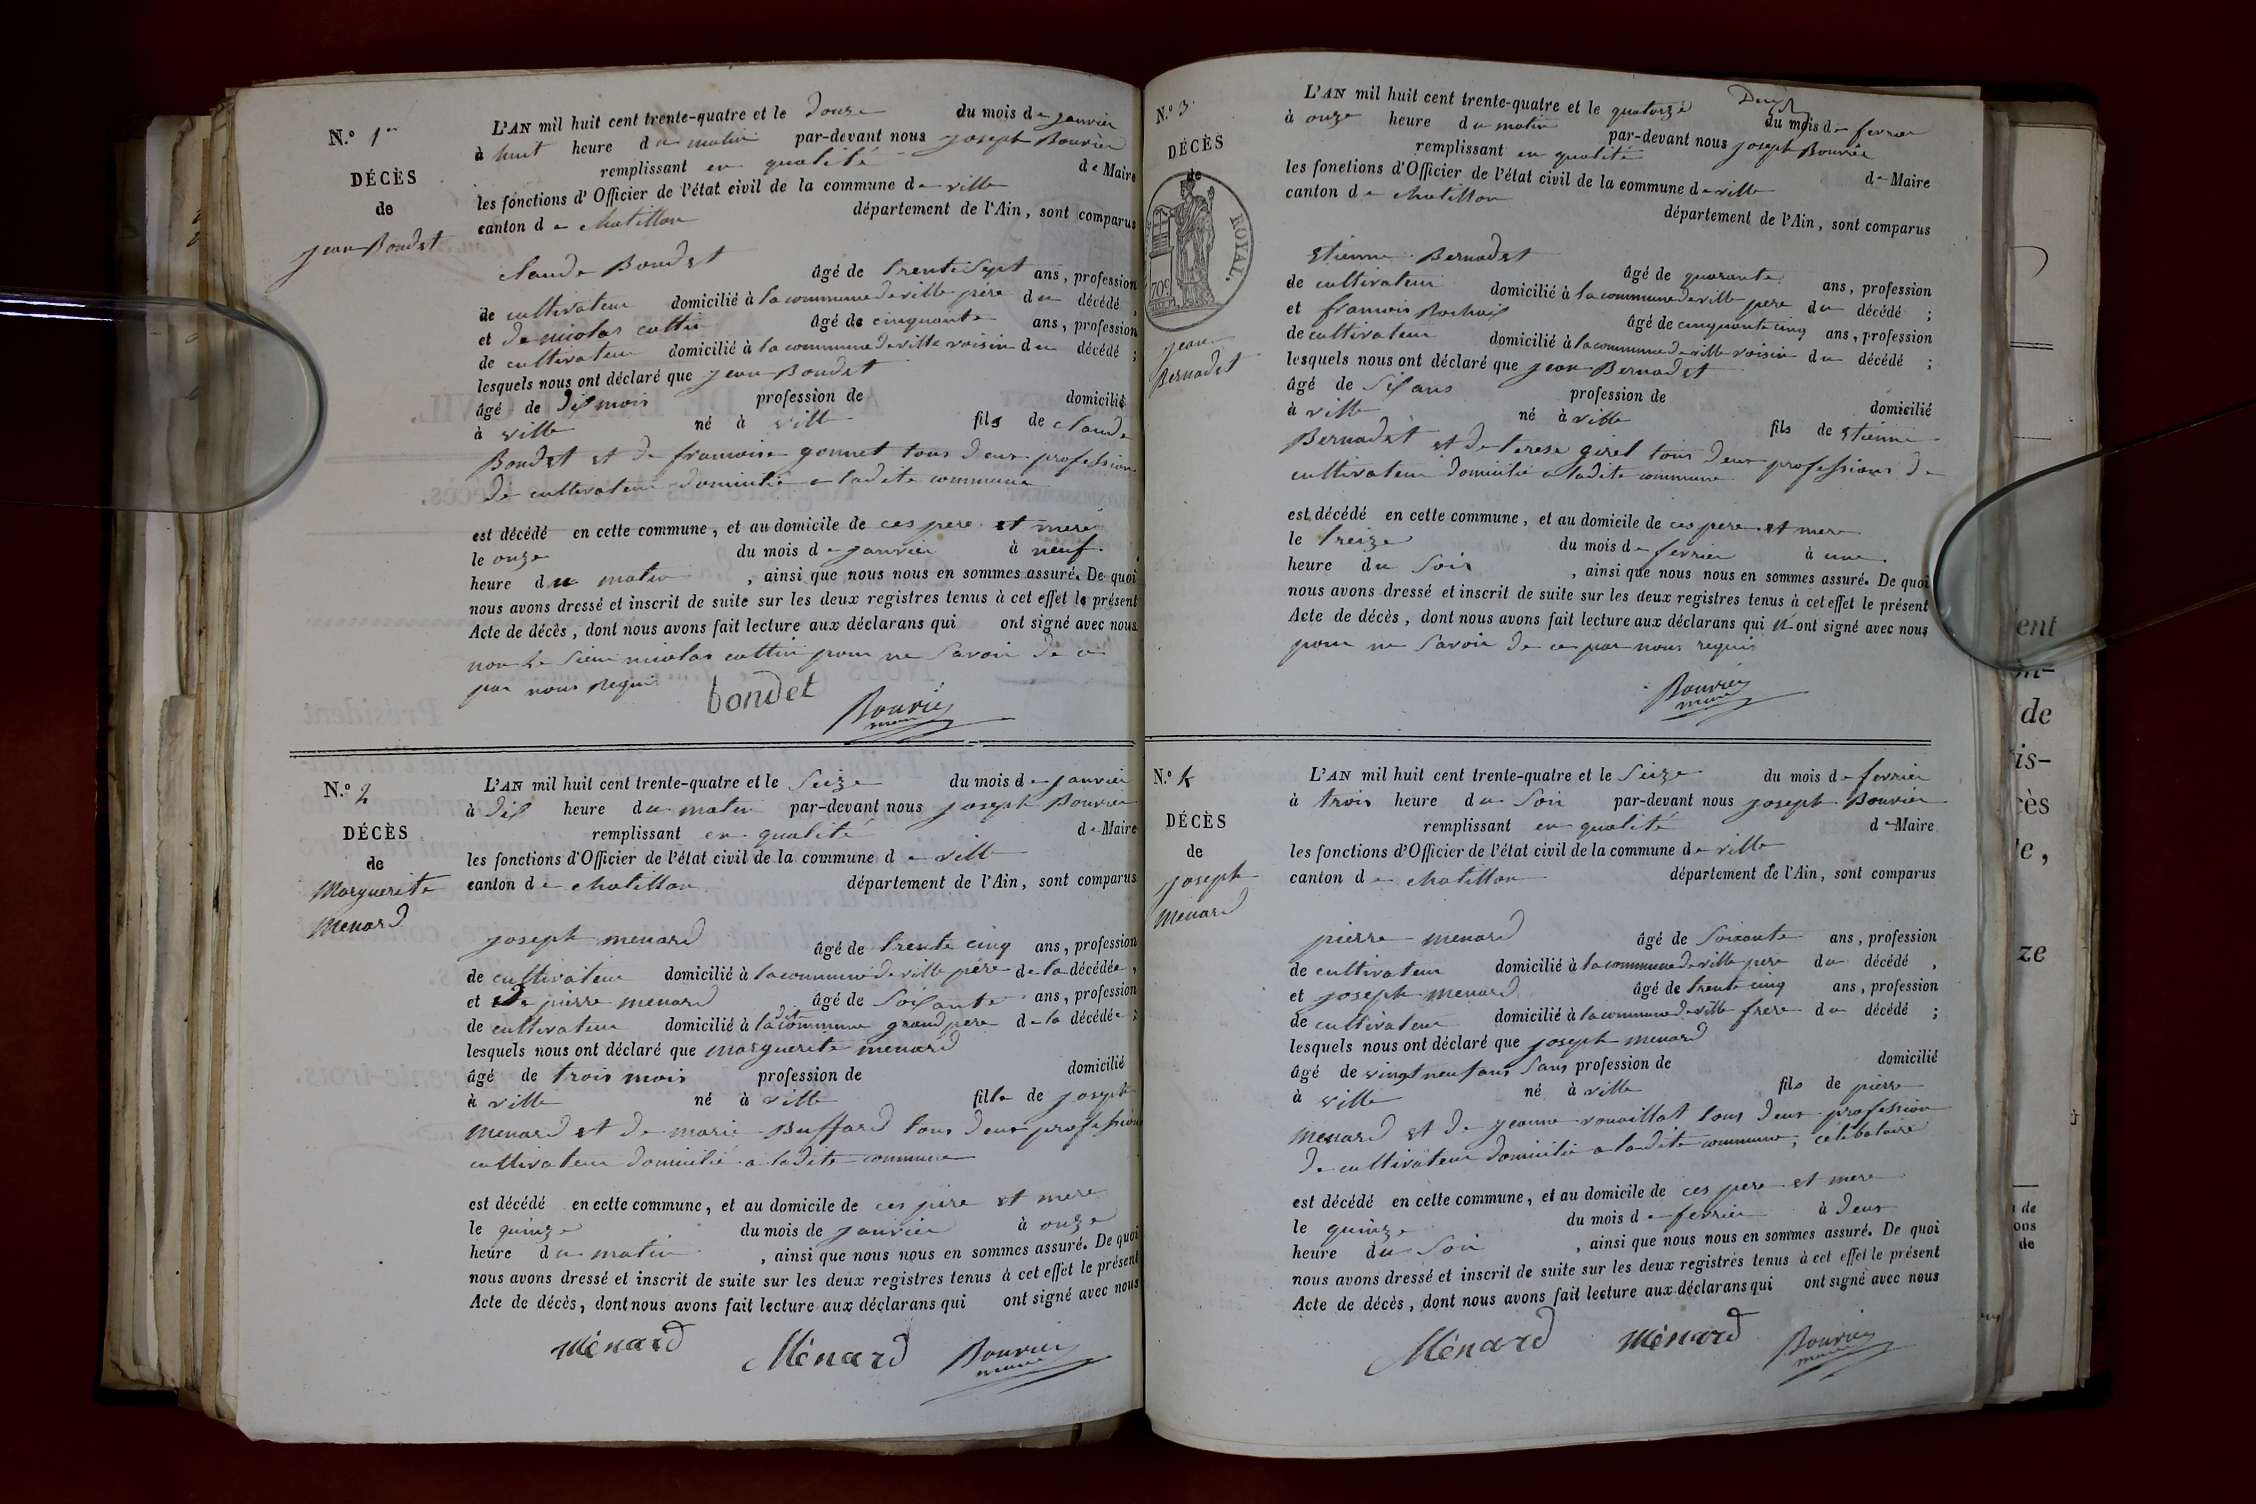 N.o 1er
DÉCÈS
de
jean Boudet
L'AN mil huit cent trente-quatre et le douze du mois de janvier
à huit heure du matin par-devant nous joseph Bouvier
remplissant en qualité de Maire
les fonctions d'Officier de l'état civil de la commune de ville
canton de chatillon département de l'Ain, sont comparus
claude Boudet âgé de trente sept ans, profession
de cultivateur domicilié à la commune de ville père du décédé ,
et de nicolas cottin âgé de cinquante ans, profession
de cultivateur domicilié à la commune de ville voisin du décédé ;
lesquels nous ont déclaré que jean Boudet
âgé de dix mois profession de domicilié
à ville né à ville fils de claude
Boudet et de francoise gonnet tous deux profession
de cultivateur domicilié a ladite commune
est décédé en cette commune, et au domicile de ces pere et mere
le onze du mois de janvier à neuf
heure du matin , ainsi que nous nous en sommes assuré. De quoi
nous avons dressé et inscrit de suite sur les deux registres tenus à cet effet le présent
Acte de décès, dont nous avons fait lecture aux déclarans qui ont signé avec nous
non le sieur nicolas cottin pour ne savoir de ce
par nous requis
bondet Bouvier
maire
N.o 2
DÉCÈS
de
Marguerite
Menard
L'AN mil huit cent trente-quatre et le seize du mois de janvier
à dix heure du matin par-devant nous joseph Bouvier
remplissant en qualité de Maire
les fonctions d'Officier de l'état civil de la commune de ville
canton de chatillon département de l'Ain, sont comparus
joseph menard âgé de trente cinq ans, profession
de cultivateur domicilié à la commune de ville père de la décédée ,
et de pierre menard âgé de soixante ans, profession
de cultivateur domicilié à ladite commune grand pere de la décédée ;
lesquels nous ont déclaré que marguerite menard
âgé de trois mois profession de domicilié
à ville né à ville fille de joseph
menard et de marie Buffard tous deux profession
cultivateur domicilié a ladite commune
est décédé en cette commune, et au domicile de ces père et mere
le quinze du mois de janvier à onze
heure du matin , ainsi que nous nous en sommes assuré. De quoi
nous avons dressé et inscrit de suite sur les deux registres tenus à cet effet le présent
Acte de décès, dont nous avons fait lecture aux déclarans qui ont signé avec nous
Ménard Ménard Bouvier
maire
N.o 3
DÉCÈS
de
ROYAL.
jean
Bernadet
L'AN mil huit cent trente-quatre et le quatorze du mois de fevrier
à onze heure du matin par-devant nous joseph Bouvier
remplissant en qualité de Maire
les fonctions d'Officier de l'état civil de la commune de ville
canton de chatillon département de l'Ain, sont comparus
Etienne Bernadet âgé de quarante ans, profession
de cultivateur domicilié à la commune de ville pere du décédé ;
et francois Rochaix âgé de cinquante cinq ans, profession
de cultivateur domicilié à la commune de ville voisin du décédé ;
lesquels nous ont déclaré que jean Bernadet
âgé de six ans profession de domicilié
à ville né à ville fils de Etienne
Bernadet et de terese girel tous deux professions de
cultivateur domicilié a ladite commune
est décédé en cette commune, et au domicile de ces pere et mere
le treize du mois de fevrier à une
heure du soir , ainsi que nous nous en sommes assuré. De quoi
nous avons dressé et inscrit de suite sur les deux registres tenus à cet effet le présent
Acte de décès, dont nous avons fait lecture aux déclarans qui n ont signé avec nous
pour ne savoir de ce par nous requis
Bouvier
maire
N.o 4
DÉCÈS
de
joseph
menard
L'AN mil huit cent trente-quatre et le seize du mois de fevrier
à trois heure du soir par-devant nous joseph Bouvier
remplissant en qualité de Maire
les fonctions d'Officier de l'état civil de la commune de ville
canton de chatillon département de l'Ain, sont comparus
pierre menard âgé de soixante ans, profession
de cultivateur domicilié à la commune de ville pere du décédé ,
et joseph menard âgé de trente cinq ans, profession
de cultivateur domicilié à la commune de ville frere du décédé ;
lesquels nous ont déclaré que joseph menard
âgé de vingt neuf ans sans profession de domicilié
à ville né à ville fils de pierre
menard et de jeanne rouaillat tous deux profession
de cultivateur domicilié a ladite commune, celebataire
est décédé en cette commune, et au domicile de ces pere et mere
le quinze du mois de fevrier à deux
heure du soir , ainsi que nous nous en sommes assuré. De quoi
nous avons dressé et inscrit de suite sur les deux registres tenus à cet effet le présent
Acte de décès, dont nous avons fait lecture aux déclarans qui ont signé avec nous
Ménard Ménard Bouvier
maire